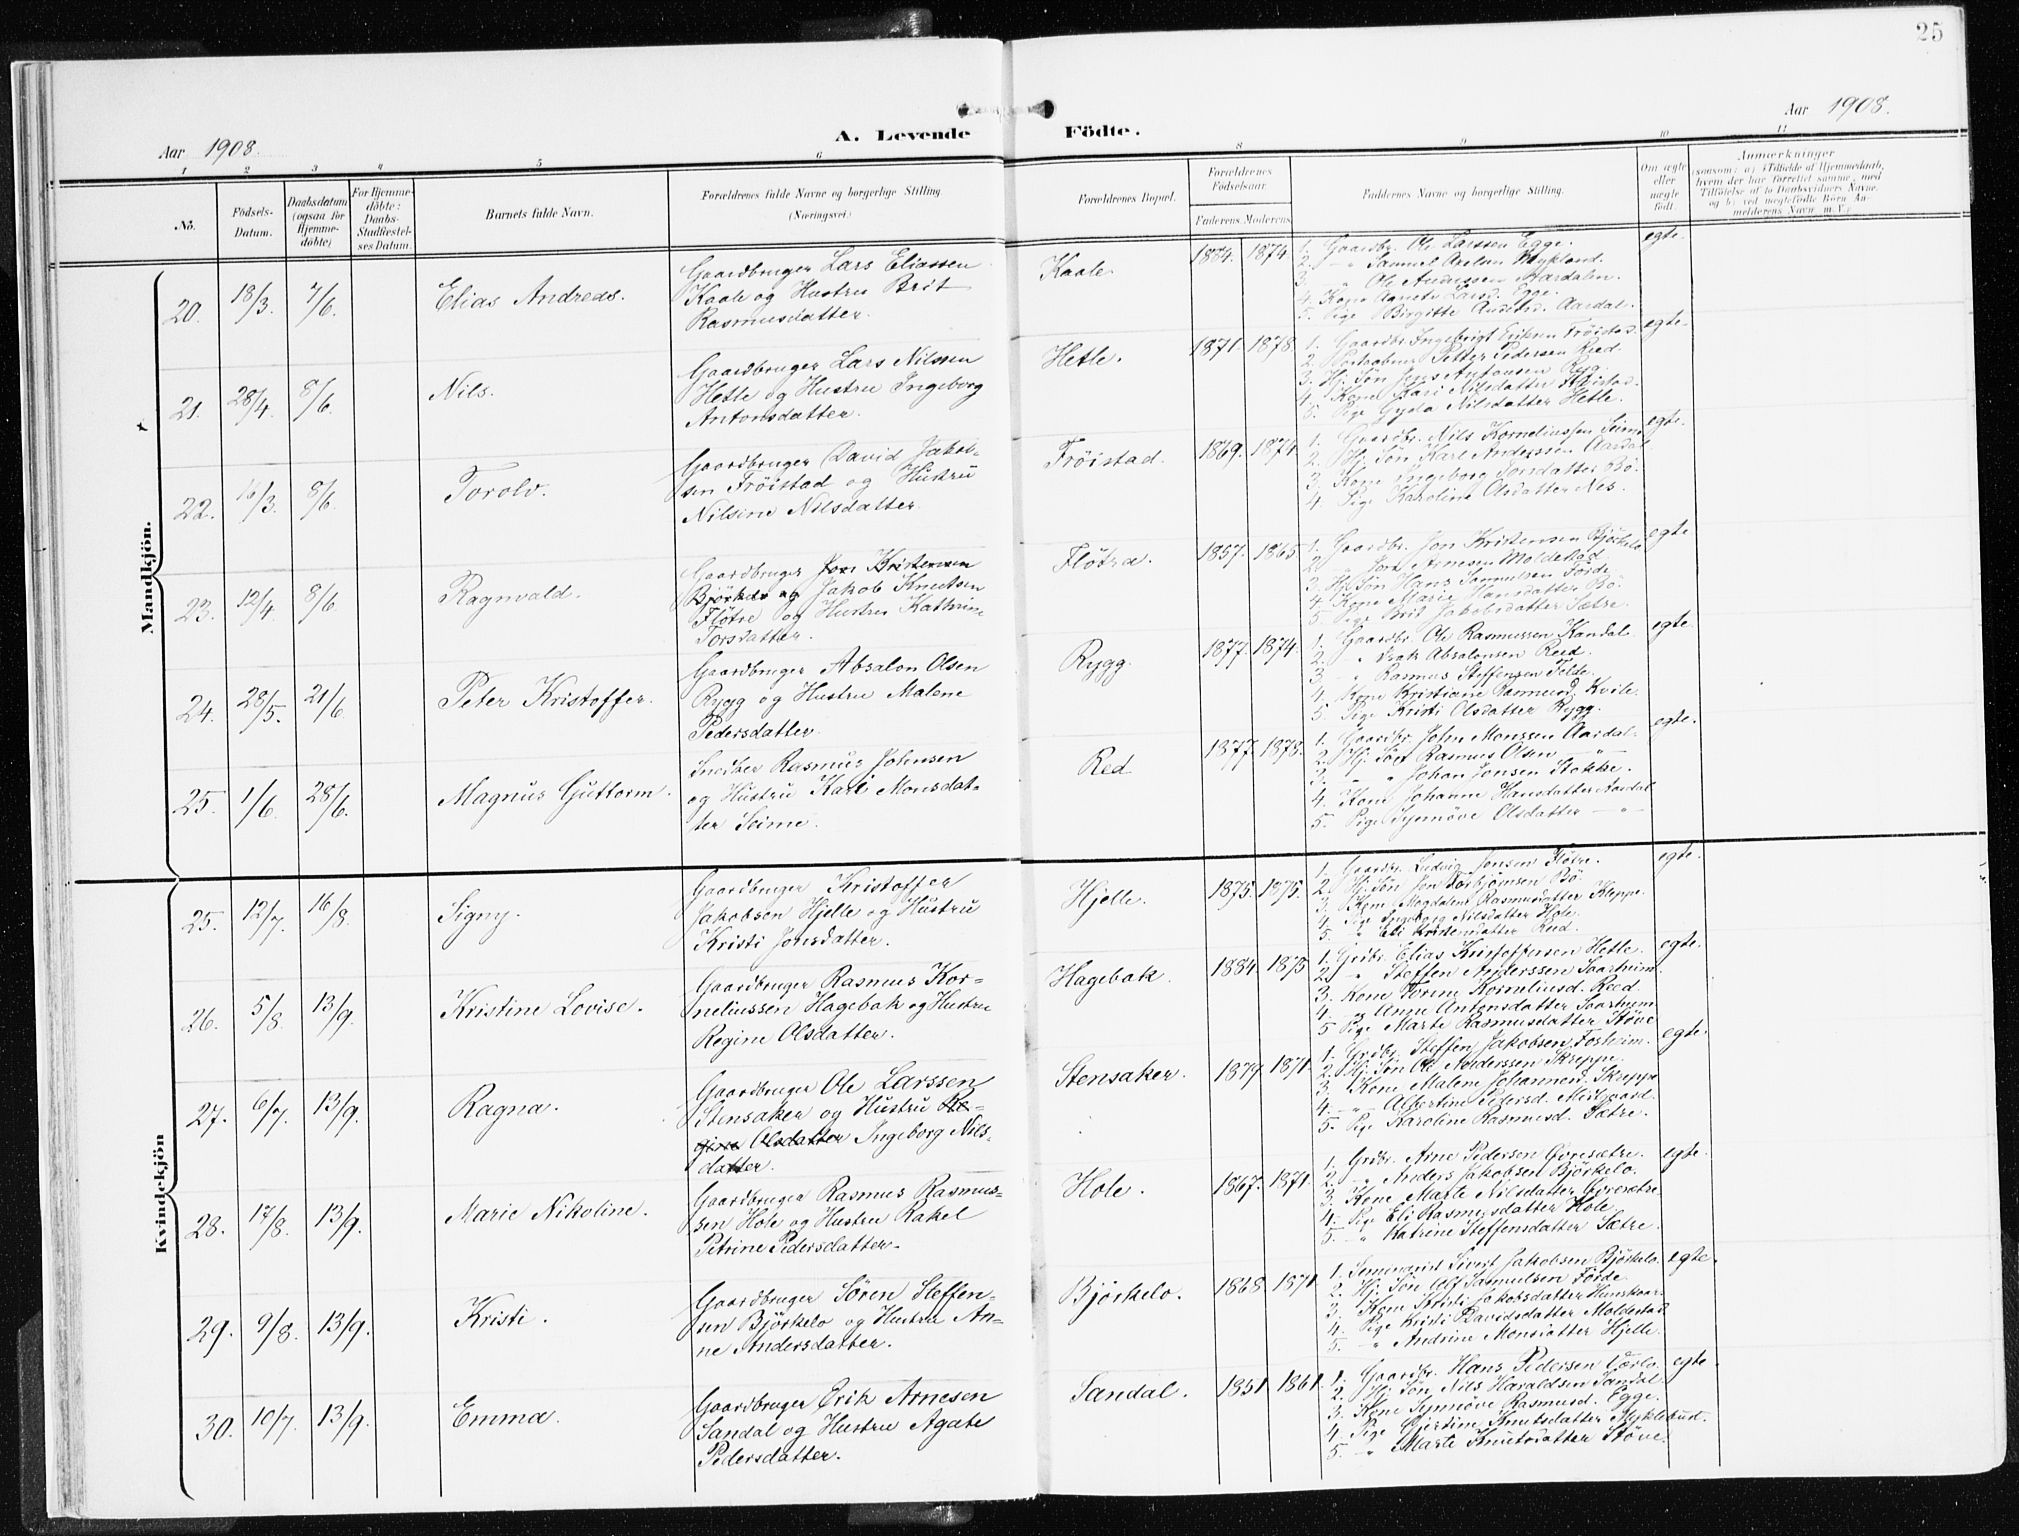 25
Aar 1908.
A. Levende Födte.
Aar 1908.
1 2 3 4 5 6 8 9 10 11
No.
Födsels-Datum.
Daabsdatum (ogsaa for Hjemme-döbte)
For Hjemme-döbte: Daabs-Stadfæstel-ses Datum.
Barnets fulde Navn.
Forældrenes fulde Navne og borgerlige Stilling.
(Næringsvei.)
Forældrenes Bopæl.
Forældrenes Födselsaar
Faderens. Moderens.
Faddernes Navne og borgerlige Stilling.
Om ægte eller uægte födt.
Anmærkninger
(saasom: a) i Tilfælde af Hjemmedaab,
hvem der har forrettet samme, med
Tilföielse af to Daabsvidners Navne.
og b) ved uægtefödte Börn An-
melderens Navn m. V.)
Mandkjön.
20. 18/3 7/6. Elias Andreas.
Gaardbruger Lars Eliassen
Kaale og Hustru Brit
Rasmusdatter.
Kaale. 1884. 1874.
1. Gaardbr. Ole Larssen Egge.
2. " Samuel Mykland.
3. " Ole Anderssen Aardalen.
4. Kone Agnete Larsd. Egge.
5. Pige Birgitte Andersd. Aardal.
egte.
21. 28/4 8/6 Nils.
Gaardbruger Lars Nilssen
Hetle og Hustru Ingeborg
Antonsdatter.
Hetle. 1871. 1878.
1. Gaardbr. Ingebrigt Eriksen Fröistad.
2. Petter Pedersen Reed.
3. Hj. Søn Jens Antonsen Ryg.
4. Kone Kari Nilsdatter
5. Pige Gyda Nilsdatter Hetle.
egte.
22. 16/3. 8/6. Torolv.
Gaardbruger David Jakob-
sen Fröistad og Hustru
Nilsine Nilsdatter.
Fröistad. 1869. 1874
1. Gaardbr. Nils Korneliussen Seime
2. Hj. Søn Karl Anderssen Aardal
3. Kone Ingeborg Jonsdatter Bö.
4. Pige Karoline Olsdatter Nes.
egte.
23. 12/4 8/6 Ragnvald.
Gaardbruger Jon Kristensen
Björkelo og Jakob Knutsen
Flötre og Hustru Kathrine
Torsdatter.
Flötra. 1857. 1865
1. Gaardbr. Jon Kristensen Björkelo
2. " Arnesen Moldestad
3. Hj. Søn Hans Samuelsen Förde.
4. Kone Marie Hansdatter Bö.
5. Pige Brit Jakobsdatter Sætre.
egte
24. 28/5. 21/6 Peter Kristoffer.
Gaardbruger Absalon Olsen
Rygg og Hustru Malene
Pedersdatter.
Rygg. 1877. 1874.
1. Gaardbr. Ole Rasmussen Kandal.
2. " Isak Absalonsen Reed.
3. " Rasmus Steffensen Felde.
4. Kone Kristiane Rasmusd. Kvile.
5. Pige Kristi Olsdatter Rygg.
egte.
25. 1/6 28/6. Magnus Guttorm.
Snedker Rasmus Johnsen
og Hustru Kari Monsdat-
ter Seime.
Red 1877. 1873.
1. Gaardbr. John Monssen Aardal.
2. Hj. Søn Rasmus Olsen "
3. " " Johan Jonsen Stokke.
4. Kone Johanne Hansdatter Aardal
5. Pige Synnöve Olsdatter "
egte.
Kvindekjön
25. 12/7. 16/8. Signy.
Gaardbruger Kristoffer
Jakobsen Hjelle og Hustru
Kristi Jonsdatter.
Hjelle. 1875. 1875.
1. Gaardbr. Ludvig Jonsen Flötre.
2. Hj. Søn Jon Torbjörnsen Bö.
3. Kone Magdalene Rasmusdatter Kleppe.
4. Pige Ingeborg Nilsdatter Hole.
5. " Eli Kristensdatter Reed.
egte.
26. 5/8. 13/9. Kristine Lovise.
Gaardbruger Rasmus Kor-
neliussen Hagebak og Hustru
Regine Olsdatter.
Hagebak. 1884. 1875
1. Grdbr. Elias Kristoffersen Hetle.
2. " Steffen Anderssen Saarheim.
3. Kone Torine Korneliusd. Reed.
4. " Anne Antonsdatter Saarheim
5. Pige Marte Rasmusdatter Stöve
egte.
27. 6/7. 13/9. Ragna.
Gaardbruger Ole Larssen
Stensaker og Hustru Re-
gine Olsdatter Ingeborg Nils-
datter.
Stensaker. 1879. 1871.
1. Grdbr. Steffen Jakobsen Fosheim.
2. Hj. Søn Ole Anderssen Skreppe.
3. Kone Malene Johannesd. Skreppe
4. " Albertine Pedersd. Midgaard.
5. Pige Karoline Rasmusd. Sætre.
egte.
28. 17/8. 13/9. Marie Nikoline.
Gaardbruger Rasmus Rasmus-
sen Hole og Hustru Rakel
Petrine Pedersdatter.
Hole. 1867. 1871.
1. Grdbr. Arne Pedersen Övresætre.
2. " Anders Jakobsen Björkelo.
3. Kone Marte Nilsdatter Övresætre
4. Pige Eli Rasmusdatter Hole
5. " Katrine Steffensdatter Sætre.
egte.
29. 9/8. 13/9. Kristi.
Gaardbruger Sören Steffen-
sen Björkelo og Hustru An-
ne Andersdatter.
Björkelo. 1868. 1871.
1. Seminarist Sivert Jakobsen Björkelo.
2. Hj. Søn Olf Samuelsen Förde
3. Kone Kristi Jakobsdatter Hunskaar
4. Pige Kristi Davidsdatter Moldestad
5. " Andrine Monsdatter Hjelle.
egte.
30. 10/7. 13/9. Emma.
Gaardbruger Erik Arnesen
Sandal og Hustru Agate
Pedersdatter.
Sandal. 1851. 1861.
1. Gaardbr. Hans Pedersen
2. Hj. Søn Nils Haraldsen Sandal
3. Kone Synnöve Rasmusd. Egge.
4. Pige Gjertine Knutsdatter Myklebust.
5. " Marte Knutsdatter Stöve.
egte.